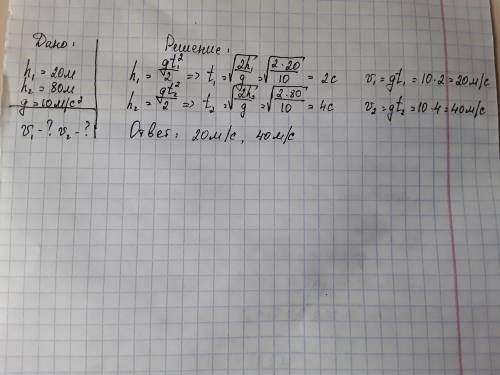 Дано:
h₁ = 20м
h₂ = 80м
g = 10м/с²
v₁ - ? v₂ - ?
Решение:
h₁ = gt₁²/2 => t₁ = √(2h₁/g) = √(2·20/10) = 2с v₁ = gt₁ = 10·2 = 20м/с
h₂ = gt₂²/2 => t₂ = √(2h₂/g) = √(2·80/10) = 4с v₂ = gt₂ = 10·4 = 40м/с
Ответ: 20м/с, 40м/с